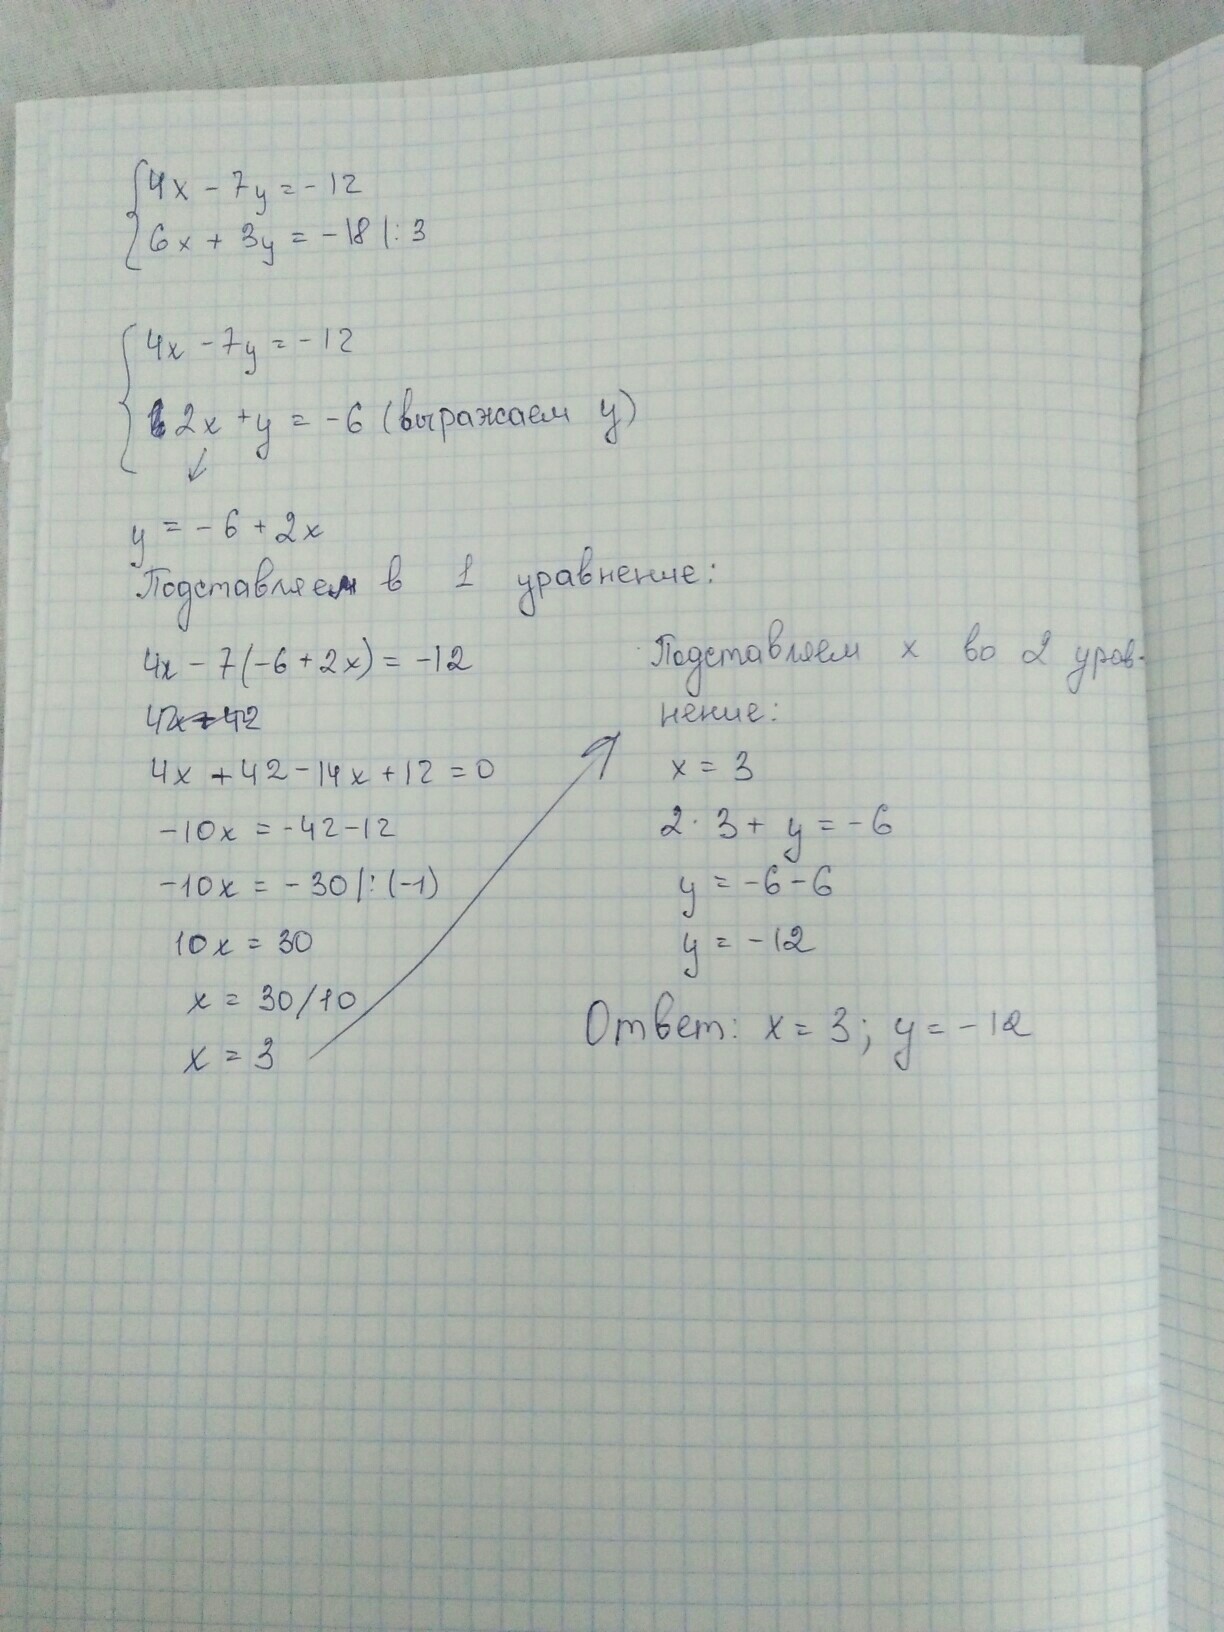 4x - 7y = -12
6x + 3y = -18 |: 3
4x - 7y = -12
2x + y = -6 (выражаем y)
y = -6 + 2x
Подставляем в 1 уравнение:
4x - 7(-6 + 2x) = -12
4x + 42
4x + 42 - 14x + 12 = 0
-10x = -42 - 12
-10x = -30 |: (-1)
10x = 30
x = 30/10
x = 3
Подставляем x во 2 урав-
нение:
x = 3
2 · 3 + y = -6
y = -6 - 6
y = -12
Ответ: x = 3; y = -12